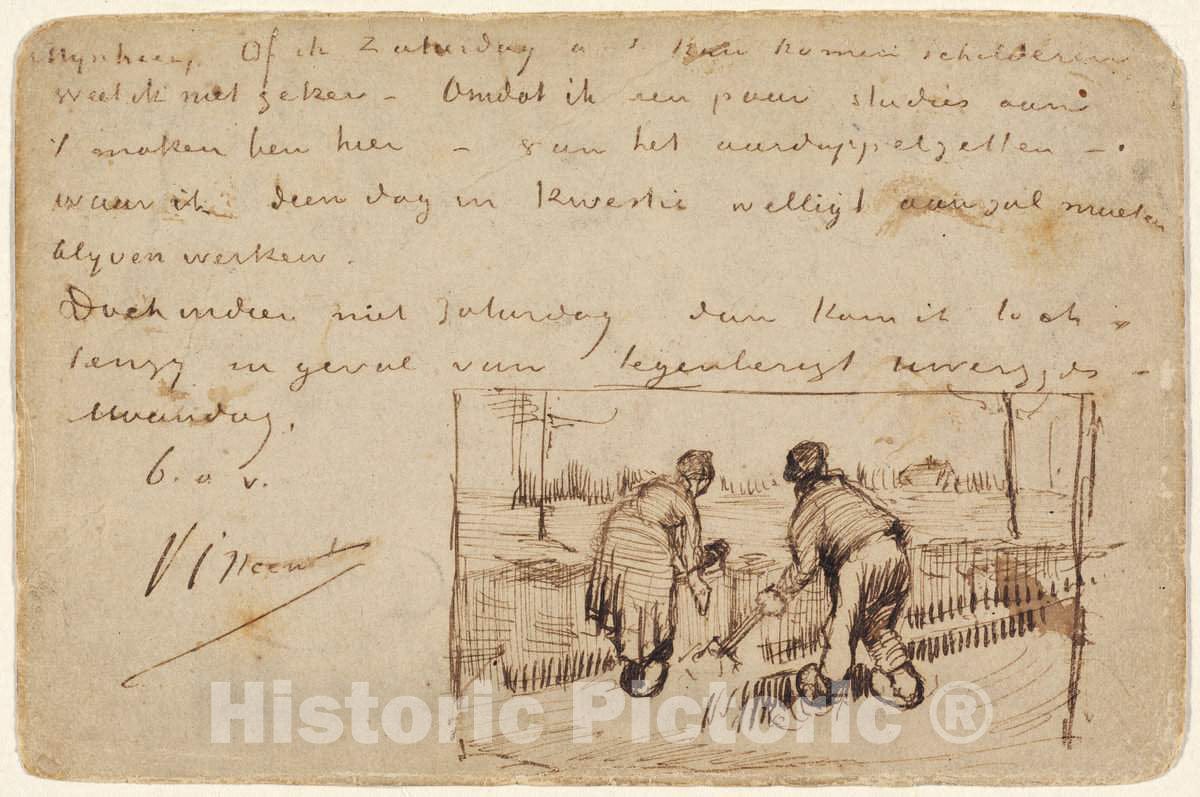 Mijnheer, Of ik Zaturdag a s kan komen schilderen
weet ik niet zeker – Omdat ik een paar studies aan
't maken ben hier – van het aardappelzetten –
waar ik dien dag in kwestie welligt aan zal moeten
blijven werken.
Doch indien niet Zaturdag dan kom ik toch
tenzij in geval van tegenberigt Uwerzijds –
Maandag.
b. a v.
Vincent
Historic Pictoric ®